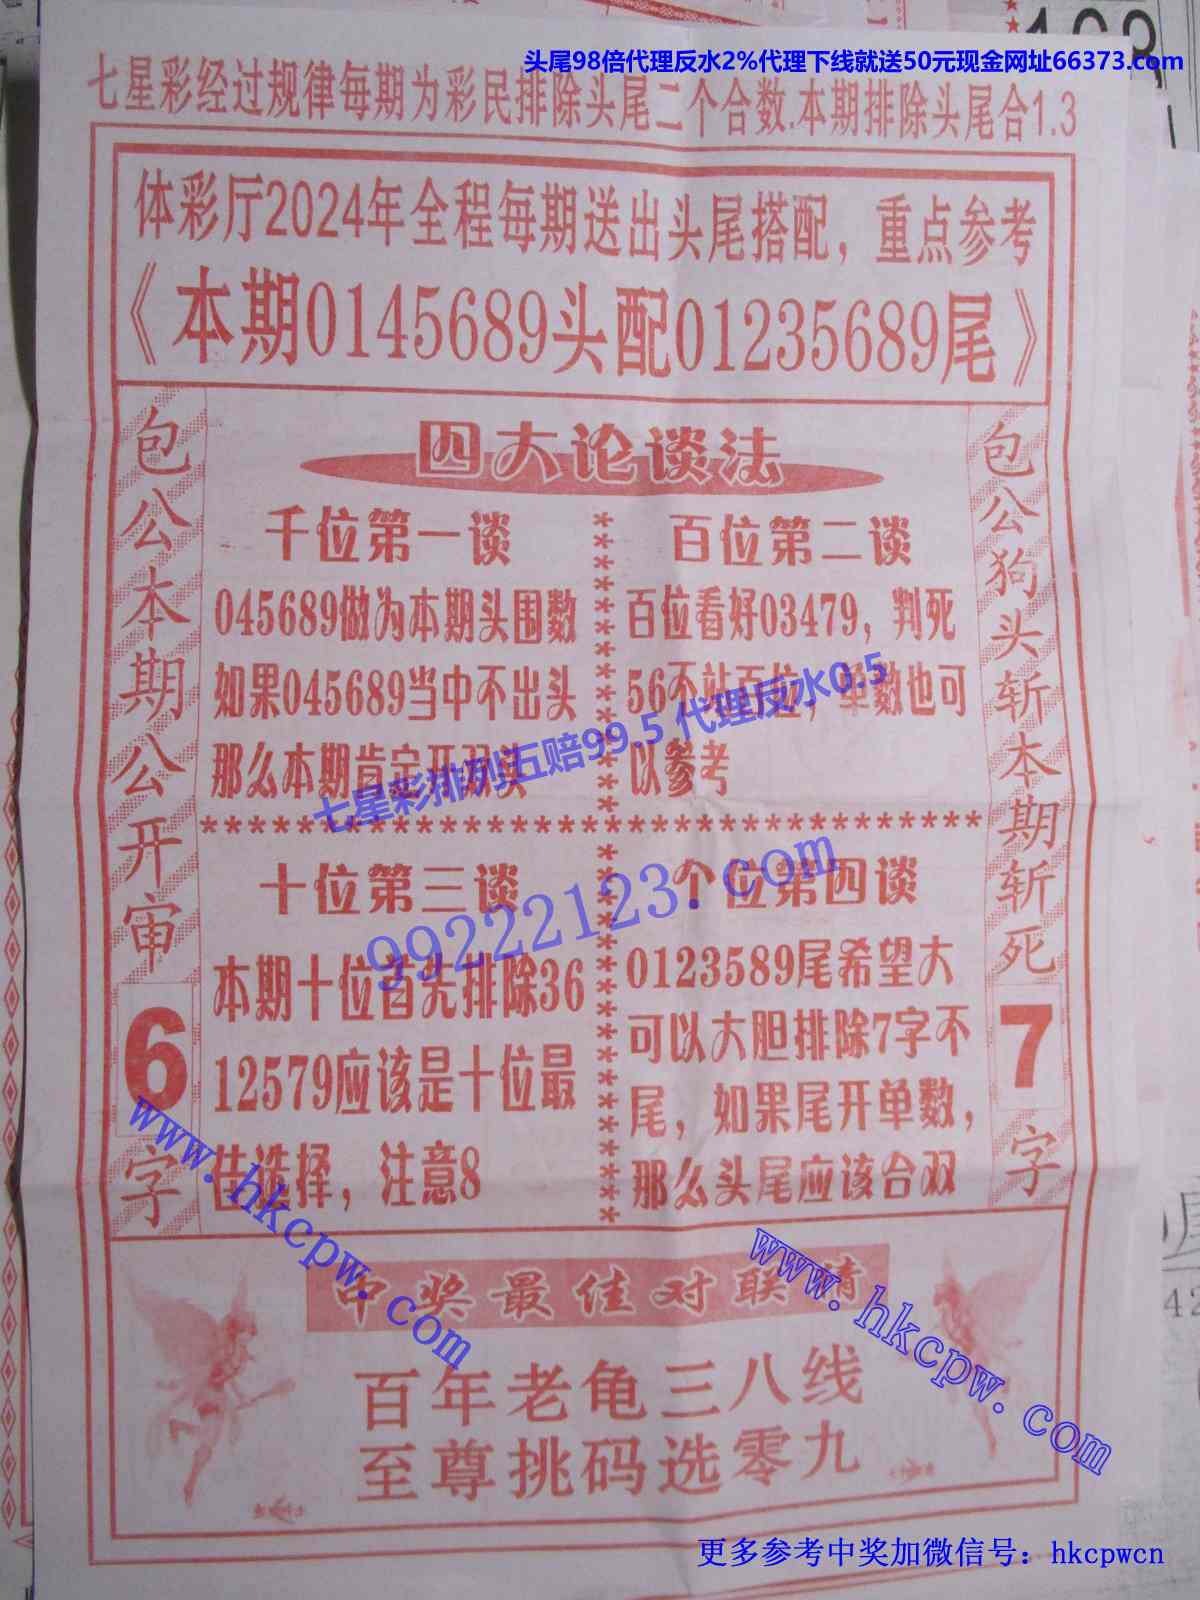 头尾98倍代理反水2%代理下线就送50元现金网址66373.com
七星彩经过规律每期为彩民排除头尾二个合数.本期排除头尾合1.3
体彩厅2024年全程每期送出头尾搭配，重点参考
《本期0145689头配01235689尾》
包公本期公开审6字
四大论谈法
千位第一谈
045689做为本期头围数
如果045689当中不出头
那么本期肯定开双头
百位第二谈
百位看好03479，判死
56不站百位，单数也可
以参考
七星彩排列五赔99.5 代理反水0.5
99222123.com
十位第三谈
本期十位首先排除36
12579应该是十位最
佳选择，注意8
个位第四谈
0123589尾希望大
可以大胆排除7字不
尾，如果尾开单数，
那么头尾应该合双
包公狗头斩本期斩死7字
www.hkcpw.com
www.hkcpw.com
中奖最佳对联情
百年老龟三八线
至尊挑码选零九
更多参考中奖加微信号：hkcpwcn